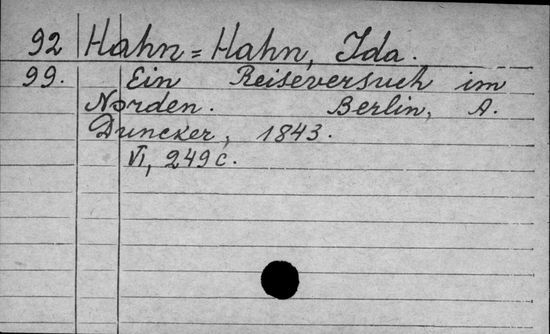 92 Hahn=Hahn, Ida.
99. Ein Reiseversuch im
Norden. Berlin, A.
Duncker, 1843.
VI, 249 c.